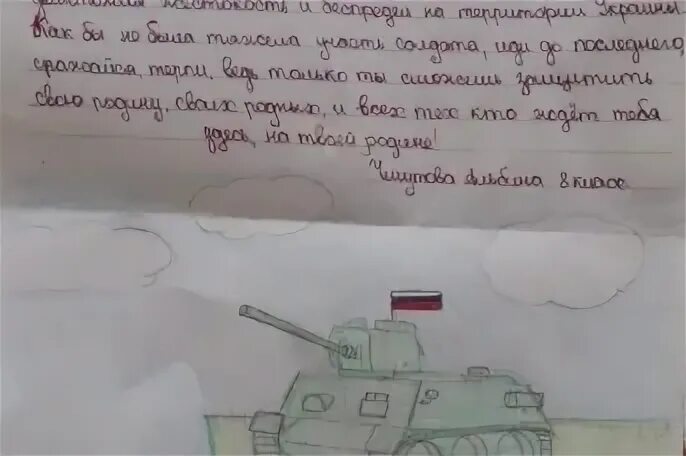 жестокость и беспредел на территории Украины.
Как бы не была тяжела участь солдата, иди до последнего,
сражайся, терпи, ведь только ты сможешь защитить
свою родину, своих родных, и всех тех кто ждёт тебя
здесь, на твоей родине!
Чмутова Альбина 8 класс